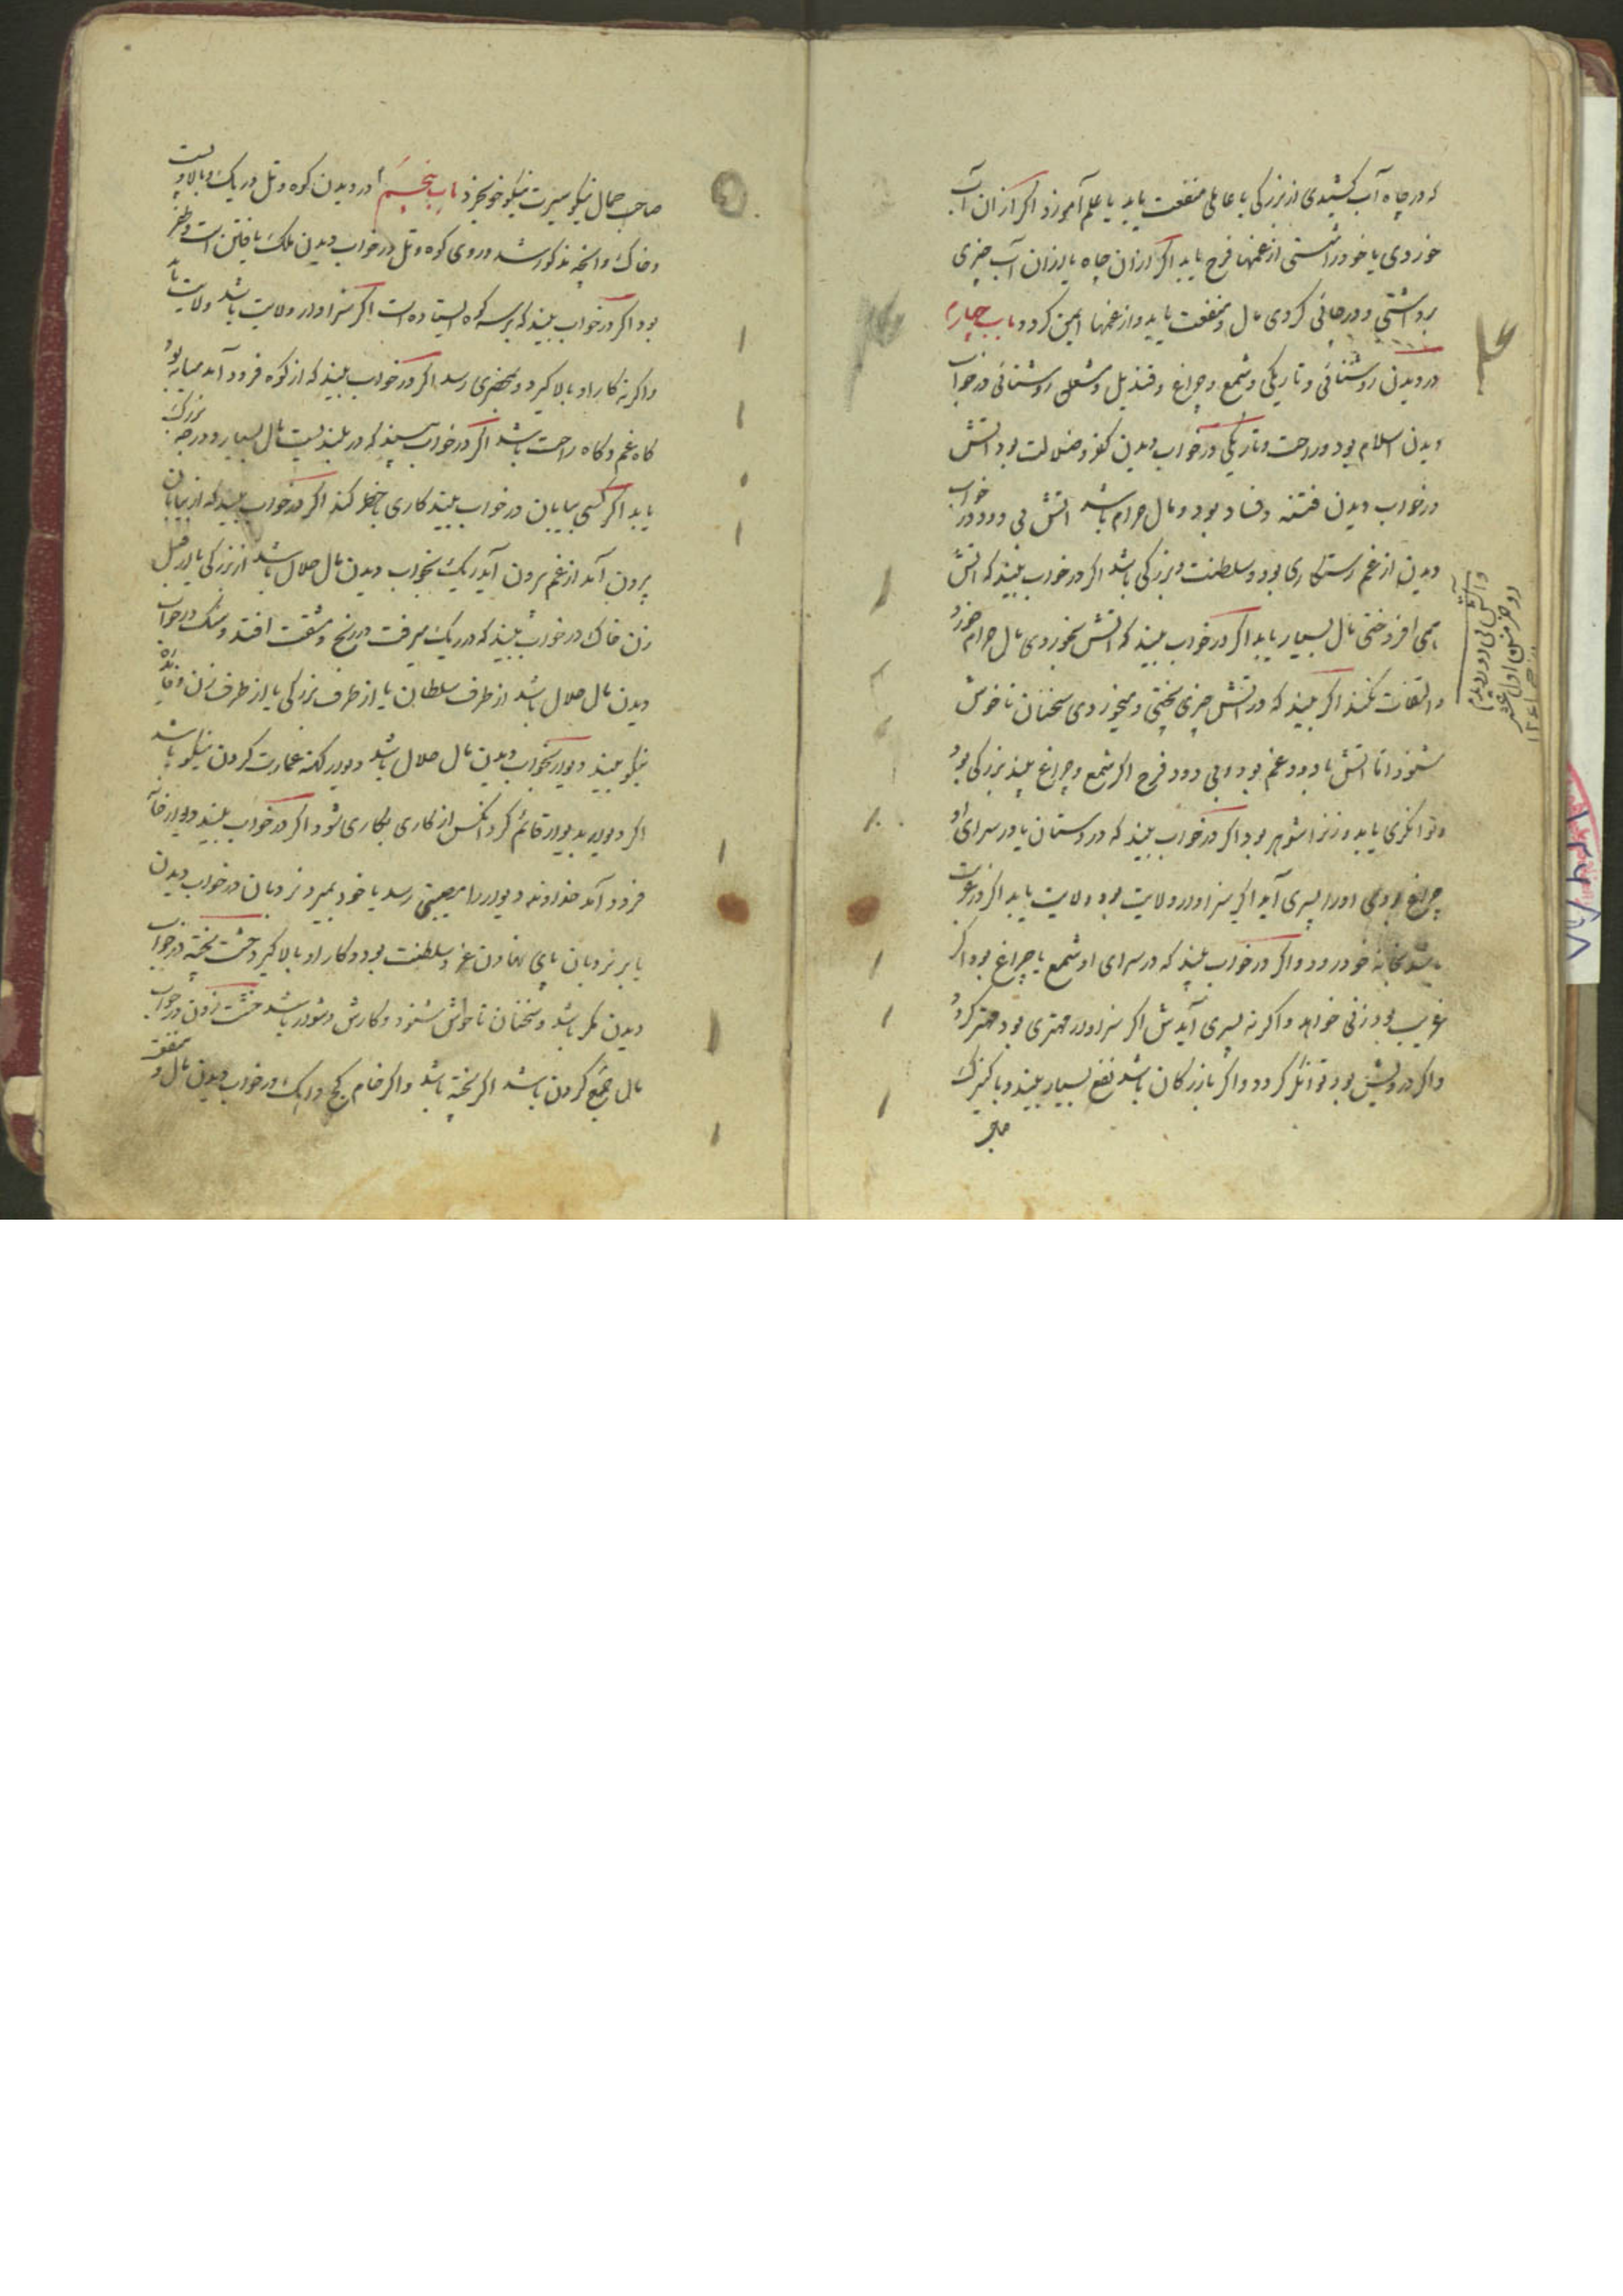 که در چاه آب کشیدی از بزرگی یا عاملی منفعت یابد یا علم آموزد اگر از ان آب
خوردی یا خود را شستی از غمها فرح یابد اگر از ان چاه یا از ان آب چیزی
برداشتی و در جائی کردی مال و منفعت یابد و از غمها ایمن کردد باب چهارم
در دیدن روشنائی و تاریکی و شمع و چراغ و قندیل و مشعل روشنائی در خواب
دیدن اسلام بود و راحت و تاریکی در خواب دیدن کفر و ضلالت بود اتش
در خواب دیدن فتنه و فساد بود و مال حرام باشد اتش بی دود در خواب
دیدن از غم رستکاری بود و سلطنت و بزرگی باشد اگر در خواب بیند که اتش
همی افروختی مال بسیار یابد اگر در خواب بیند که اتش بخوردی مال حرام خورد
و التفات نکند اگر بیند که در اتش چیزی پختی و میخوردی سخنان ناخوش
شنود اما اتش با دود غم بود و بی دود فرح اگر شمع و چراغ بیند بزرگی بود
و توانگری یابد و زن را شوهر بود اگر در خواب بیند که در دستان یا در سرای او
چراغ بودی او را پسری آید اگر سزاوار ولایت بود ولایت یابد اگر در غربت
باشد بخانه خود رود و اگر در خواب بیند که در سرای او شمع یا چراغ بود اگر
غریب بود زنی خواهد و اگر نه پسری آیدش اگر سزاوار مهتری بود مهتر کردد
و اگر درویش بود توانگر کردد و اگر بازرکان باشد نفع بسیار بیند و با کنیزک
صاحب
و آتش بی دود دیدم
۴
۱۳۴/۵۸
صاحب جمال نیکو سیرت نیکو خو بخرد باب پنجم در دیدن کوه و تل و ریک و بالا و پست
و خاک و انچه مذکور شد و روی کوه و تل در خواب دیدن ملک یافتن است و ظفر
بود اگر در خواب بیند که بر سر کوه ایستاده است اگر سزاوار ولایت باشد ولایت یابد
و اگر نه کار او بالا گیرد و بمهتری رسد اگر در خواب بیند که از کوه فرود آمد میانه بود
گاه غم و گاه راحت باشد اگر در خواب بیند که در بلندیست مال بسیار و درجه بزرک
یابد اگر کسی بیابان در خواب بیند کاری با خطر کند اگر در خواب بیند که از بیابان
بیرون آمد از غم بیرون آید ریک بخواب دیدن مال حلال باشد از بزرگی یا از قبل
زن خاک در خواب بیند که در ریک میرفت در رنج و مشقت افتد و سنک در خواب
دیدن مال حلال باشد از طرف سلطان یا از طرف بزرگی یا از طرف زن و فایده
نیکو بیند دیوار بخواب دیدن مال حلال باشد و دیوار کهنه عمارت کردن نیکو باشد
اگر دیوار بدیوار قائم کرد انکس از کاری بکاری شود اگر در خواب بیند دیوار خانه
فرود آمد خداوند دیوار را مصیبتی رسد یا خود بمیرد نردبان در خواب دیدن
یا بر نردبان پای نهادن عز و سلطنت بود و کار او بالا گیرد خشت پخته در خواب
دیدن مکر باشد و سخنان ناخوش شنود و کارش دشوار باشد خشت زدن در خواب
مال جمع کردن باشد اگر پخته باشد و اگر خام کچ و اهک در خواب دیدن مال و منفعت